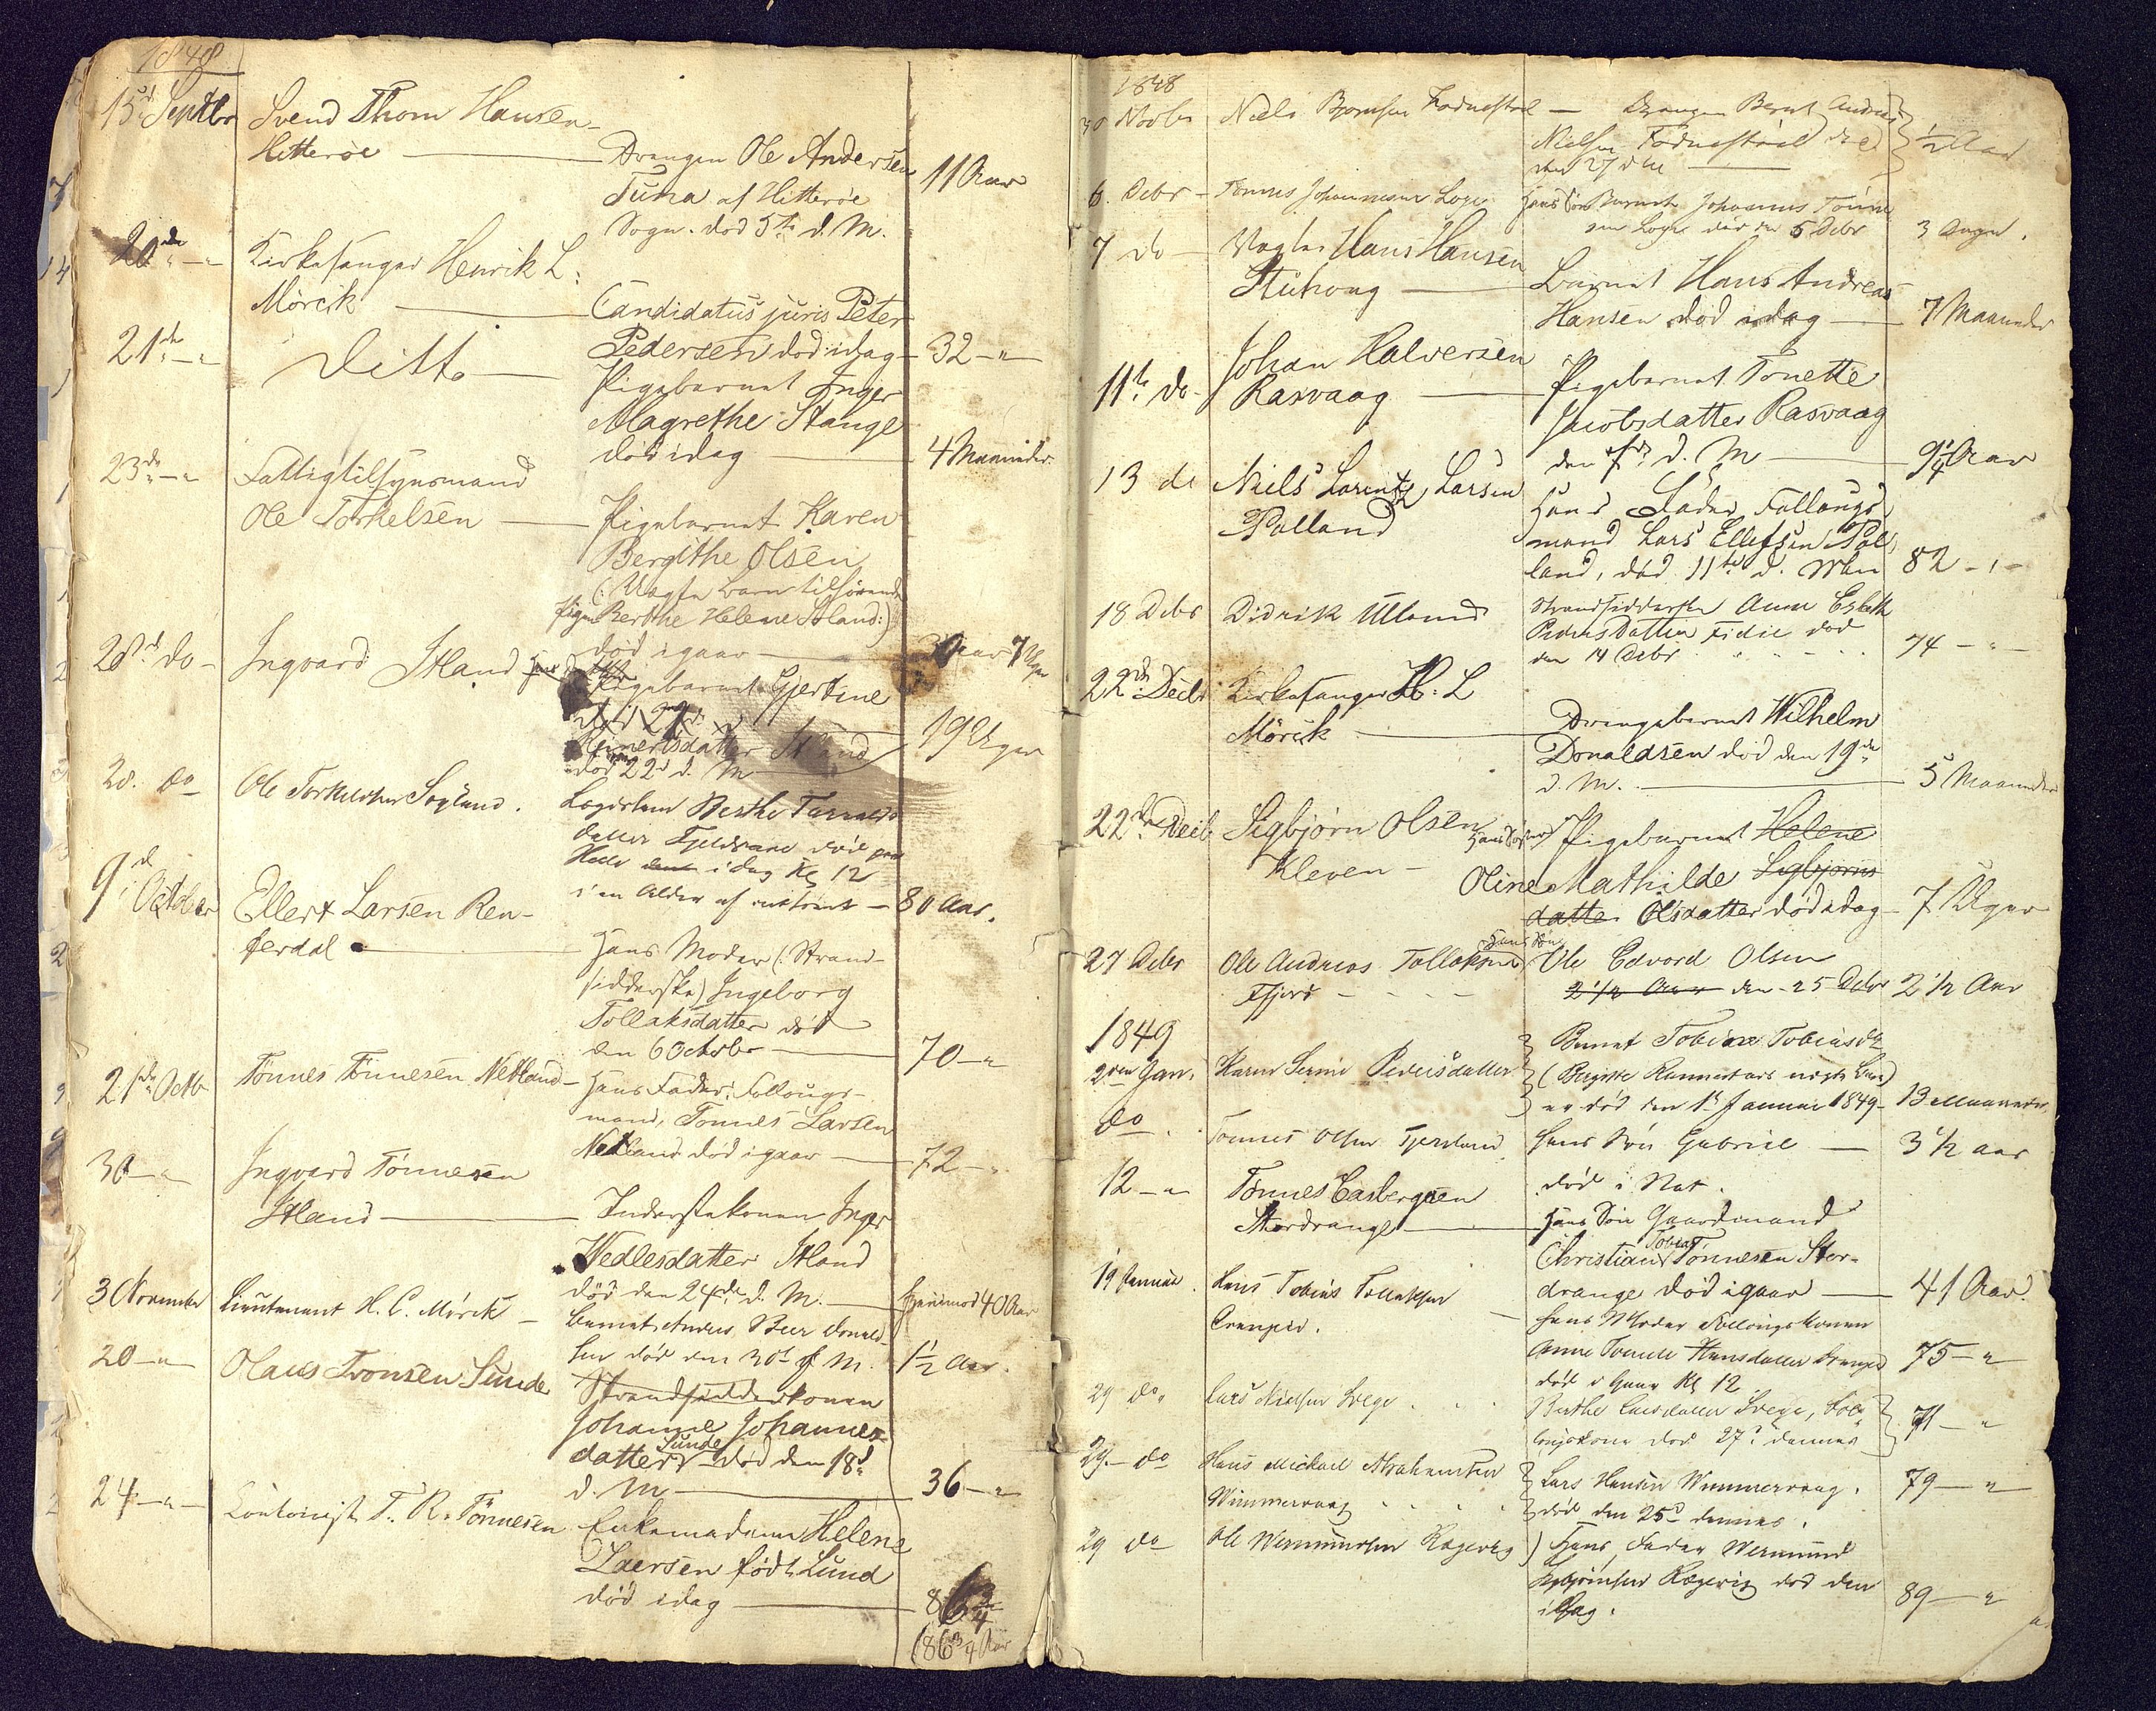 1848
15d Septbr Svend Thom Hansen
Hitterøe — Drengen Ole Andersen
Tuna af Hitterøe 11 Aar
Sogn. død 5te d. M.
20de — " Kirkesanger Henrik L:
Mörck — Candidatus juris Peter
Pedersen død idag — 32 — "
21de — " Ditto — Pigebarnet Inger
Magrethe Stange
død idag — 4 Maaneder
23de — " Fattigtilsynsmand
Ole Torkelsen — Pigebarnet Karen
Bergithe Olsen
(: Uægte Barn tilhørende
Pigen Berthe Helene Itland:)
død igaar — 7 Uger
28d do — Ingvard Itland
Pigebarnet Gjertine
Reinertsdatter Itland 19 Uger
død 22d d. M
28. do Ole Torkildsen Logslem Berthe
datter død paa
Hede idag Kl 12
i en Alder af — 80 Aar.
9d October Ellert Larsen Ren-
ferdal — Hans Moder (: Strand-
sidderske) Ingeborg
Tollaksdatter død
den 6 Octobr — 70 — "
21de Octb Tönnes Tönnesen Netland — Hans Fader, Follaugs-
mand, Tönnes Larsen
Netland død igaar — 72 — "
30 — " Ingvard Tönnesen
Itland — Inderstekonen Inger
Nedlesdatter Itland
død den 24de d. M. — henimod 40 Aar
3 November Lieutenant H. C. Mörck — Barnet Anders Beer Donald-
sen død den 30t f M. 1½ Aar.
20 — " Olaus Tronsen Sunde Strandsidderkonen
Johanne Johannes-
datter Sunde død den 18d
d. M — 36 — "
24 — " — Contorist T. R. Tönnesen Enkemadame Helene
Laersen født Lund
død idag — 86 3/4
(86 3/4 Aar
1848
30 Novbr Niels Bjornsen Fodnestøl — Drengen Bernt Andreas
Nielsen Fodnestøl død ½ Aar
den 27 dM —
6. Debr — Tönnes Johannesen Loge Hans Søn Barnet Johannes Tönne
sen Loge død den 5 Debr 3 Dage.
7 do — Vægter Hans Hansen
Stuhoug — Barnet Hans Andreas
Hansen død idag — 7 Maaneder
11te do — Johan Halversen
Rasvaag — Pigebarnet Tonette
Jacobsdatter Rasvaag
den d. M — 9¼ Aar
13 do Niels Lorentz Larsen
Polland Hans Fader, Follaugs
mand Lars Ellefsen Pol
land, død 11te d. Mdn 82 - " -
18 Debr Didrik Ulland Strandsidderske Anne Elsbeth
Peders Datter Eidie død
den 14 Debr 74 — " —
22de Decbr Kirkesanger H: L
Mörck — Drengebarnet Wilhelm
Donaldsen død den 19de
d. M. — 5 Maaneder
22de Decb Sigbjørn Olsen
Kleven — Hans Pigebarnet Helene
Oline Mathilde Sigbjørns
datter Olsdatter død idag — 7 Uger
27 Debr Ole Andreas Tollaksen Hans Søn Ole Edvard Olsen
2 1/2 Aar den 25 Debr 2 1/2 Aar
1849
2den Jan. Karen Serine Pedersdatter Barnet Tobine Tobiasdt
er død den 1t Januar 1849 — 13 Maaneder
do. Tönnes Olsen Hans Søn Gabriel — 3 1/2 aar
død i Nat.
12 — " Tönnes Casbergsen
Stordrange — Hans Søn Gaardmand
Christian Tobias Tönnesen Stor-
drange død igaar — 41 Aar.
19 Januar. Hans Tobias Tollaksen — Hans Moder Follaugskonen
Anne Hansdatter 75 — "
død i Gaar Kl 12
29 do. Lars Nielsen Brege Berthe Larsdatter Brege, 71 — "
død 27d dennes
29. — do Hans Mickael Abrahamsen
Wimmervaag Lars Hansen Wimmervaag. 79 — "
død den 25d dennes.
29 do Ole Wermundsen Rægevig Hans Fader Wermund
Rægevig død den 89 — "
idag.